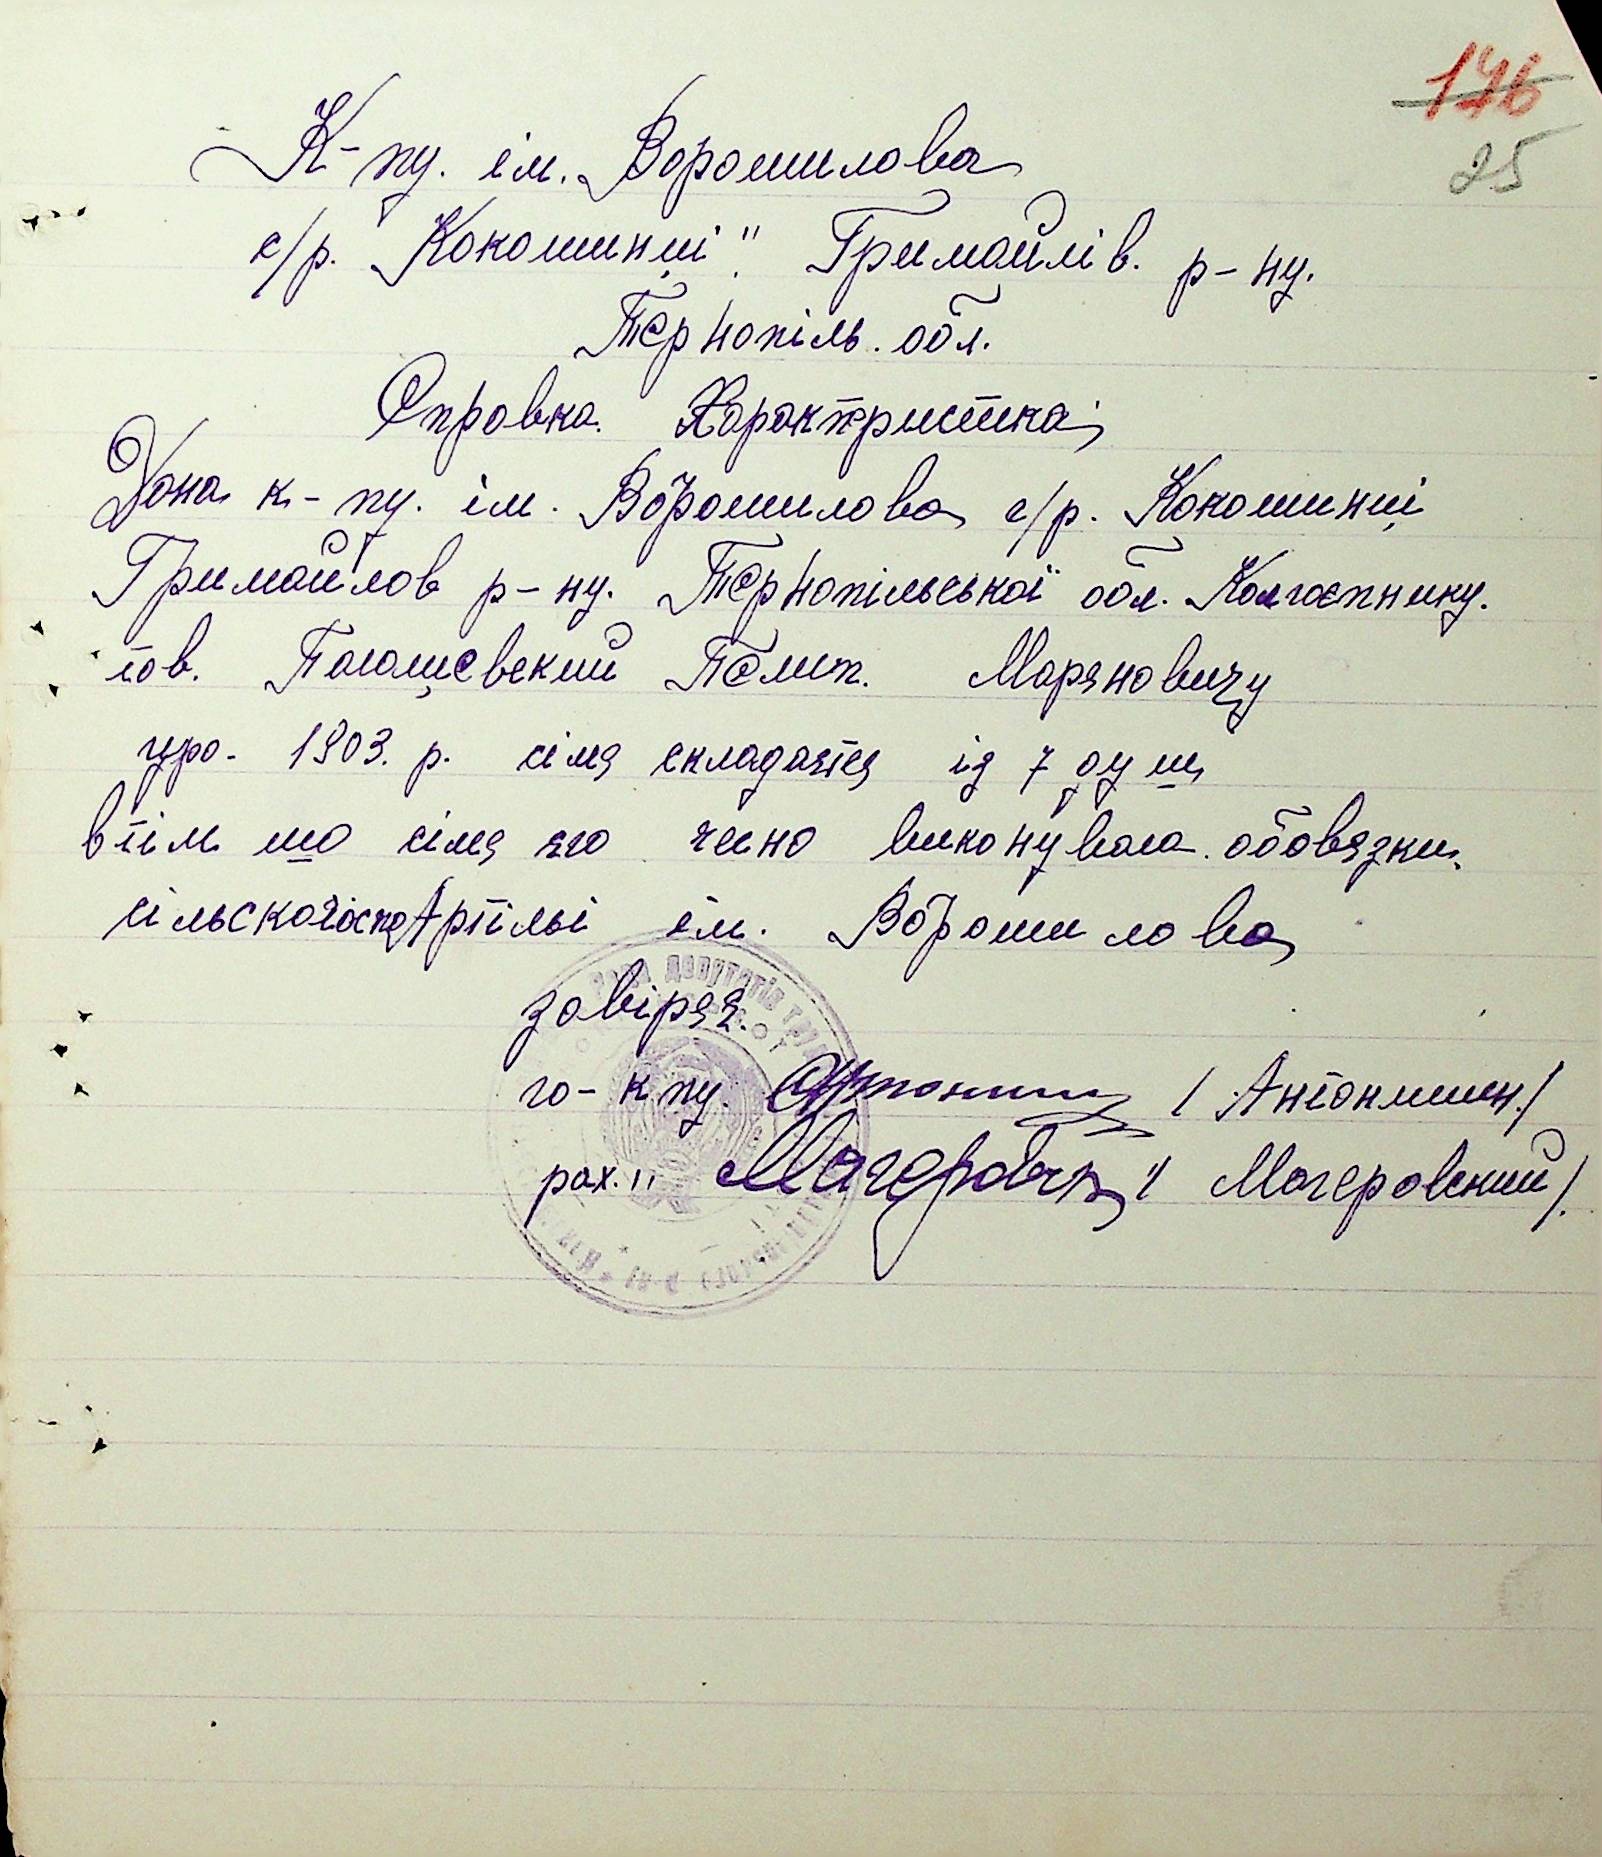 146
25
К-пу. ім. Ворошилова
с/р. "Кокошинці". Гримайлів. р-ну.
Тернопіль. обл.
Справка. Характристика
Дона к-пу. ім. Ворошилова с/р. Кокошинці
Гримайлов р-ну. Тернопільської обл. Колгоспнику.
тов. Маряновичу
уро. 1903. р. сімя складаєтся із 7 душ
втім що сімя его чесно виконувала обовязки
сільскогоспо Артільі ім. Ворошилова
завіряя.
го- к пу. / Антонишин /
рах. " / Магеровский /.
Рада депутатів